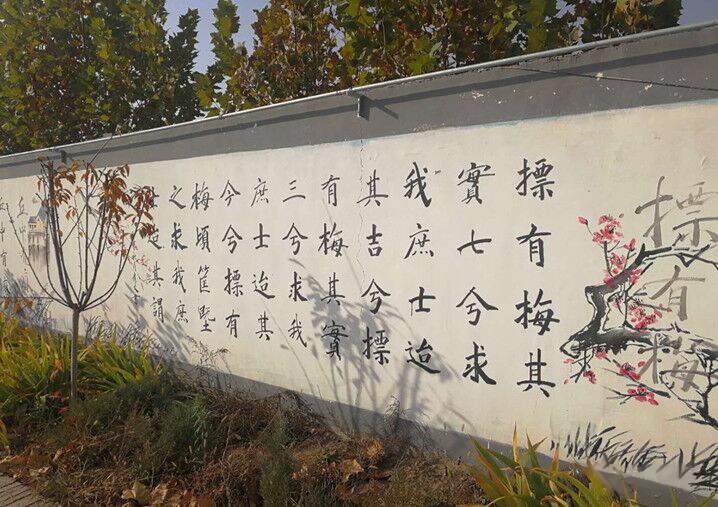 摽有梅
摽有梅其
實七兮求
我庶士迨
其吉兮摽
有梅其實
三兮求我
庶士迨其
今兮摽有
梅頃筐塈
之求我庶
士迨其謂